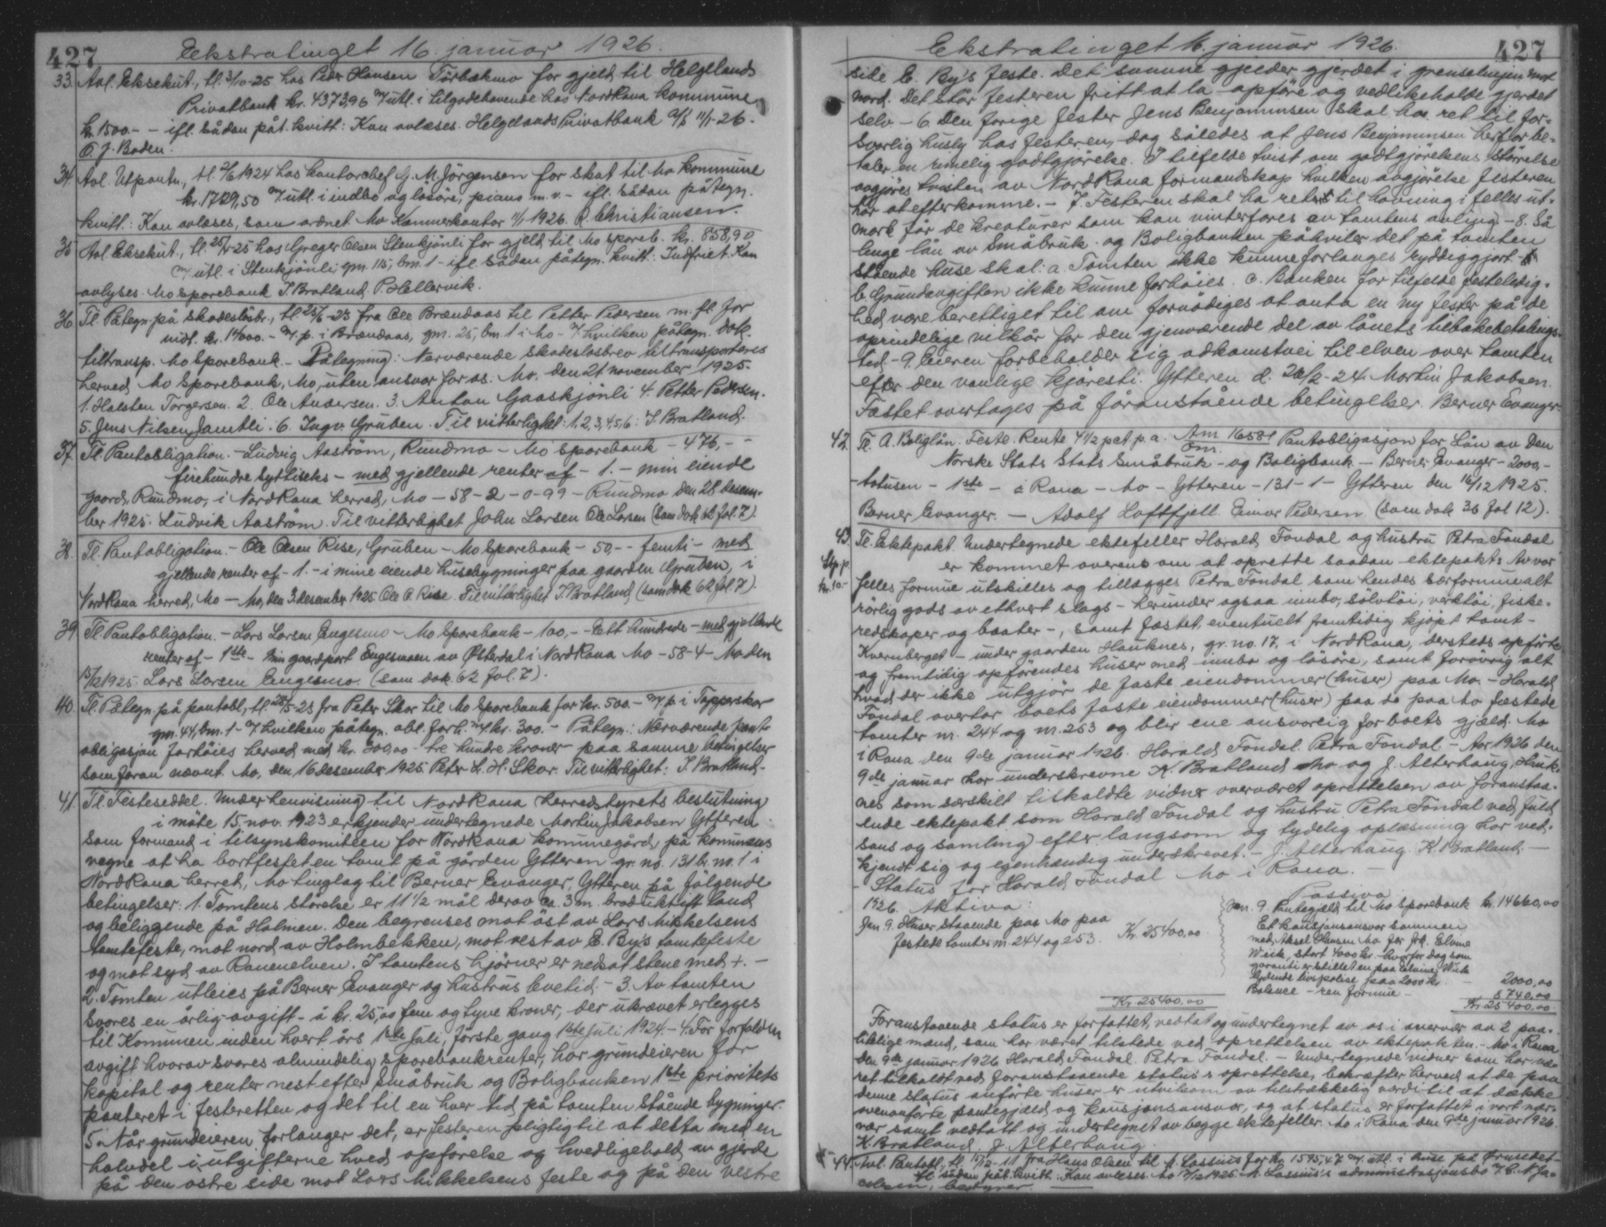 427 Ekstratinget 16. januar 1926.
33. Avl. Eksekut., tl. 3/10-25 hos Peder Hansen Törbekmo for gjeld til Helgelands
Privatbank kr. 4373,96 m/utl. i tilgodehavende hos NordRana kommune
kr. 1500.- - ifl. sådan påt. kvitt: Kan avlæses. Helgelands Privatbank
O. J. Boden.
34 Avl. Utpantn, tl. 1924 hos kontorchef M. Jörgensen for skat til Mo kommune
kr. 1729,50 m/utl. i indbo og løsöre, piano m.v. - ifl. sådan påtegn.
kvitt: Kan avlæses, som ordnet Mo Kæmnerkontor 1926. Christiansen.
35 Avl. Eksekut., tl. 25 hos Greger Olsen Stenkjönli for gjeld til Mo Spareb. kr. 858,90
m/utl. i Stenkjönli gm. 115, bm. 1 - ifl. sådan påtegn. kvitt: Indfriet Kan
avlyses. Mo Sparebank J. Bratland P. Hellervik.
36 Tl. Påtegn på skadeslösbr., tl. 23 fra Ole Brændaas til Petter Pedersen m. fl. for
indt. kr. 14000.- m/p. i Brændaas, gm. 25, bm. 1 i Mo - v/ hvilken påtegn. dok.
tiltransp. Mo Sparebank. - Påtegning: Nærværende skadeslosbrev tiltransporteres
herved Mo Sparebank, Mo, uten ansvar for os. Mo. den 21 november 1925.
1. Halsten Torgersen. 2. Ole Andersen. 3. Anton Gaaskjönli 4. Petter Pedersen.
5. Jens Nilsen Jamtli. 6. Ingv. Gruben. Til vitterlighet: 1, 2, 3, 4, 5, 6: J. Bratland
37 Tl. Pantobligation. - Ludvig Aaström, Rundmo - Mo Sparebank - 476,- -
firehundre syttiseks - med gjellende renter af - 1. - min eiende
gaard, Rundmo, i NordRana herred, Mo - 58 - 2 - 0-99 - Rundmo den 28 desem-
ber 1925. Ludvik Aaström. Til vitterlighet John Larsen Ole Larsen (Som dok 62 fol. 7).
38 Tl. Pantobligation. - Ole Olsen Rise, Gruben - Mo Sparebank - 50,- - femti - med
gjellende renter af - 1. - i mine eiende husebygninger paa gaarden Gruben, i
NordRana herred, Mo - Mo, den 3. desember 1925 Ole O. Rise. Til vitterlighet J. Bratland (som dok 62 fol 7)
39 Tl. Pantobligation. - Lars Larsen Engesmo - Mo Sparebank - 100,- - Ett hundrede - med gjellende
renter af - 1ste - Min gaardpart Engesmoen av Østerdal i NordRana Mo - 58-4 - Mo den
15/12 1925. Lars Larsen Engesmo. (som dok. 62 fol. 7).
40 Tl. Påtegn på pantobl., tl. 23 fra Peter Skar til Mo Sparebank for kr. 500.- m/p. i Tapperskar
gm. 44, bm. 1 - v/ hvilken påtegn. obl. forh. m/ kr. 300.- Påtegn: Nærværende pant-
obligasjon forhöies herved med kr. 300,00 - tre hundre kroner - paa samme betingelser
som foran nævnt. Mo, den 16 desember 1925 Peter L. H. Skar. Til vitterlighet: J. Bratland. -
41. Tl. Festeseddel. Under henvisning til NordRana herredstyrets beslutning
i möte 15 nov. 1923 erkjender undertegnede Martin Jakobsen Ytteren
som formand i tilsynskomiteen for NordRana kommunegård, på kommunens
vegne at ha bortfestet en tomt på gården Ytteren gr. no. 131 b. no. 1 i
NordRana herred, Mo tinglag til Berner Evanger, Ytteren på følgende
betingelser: 1. Tomtens störelse er 11 1/2 mål derav ca. 3 m. brod uktift land
og beliggende på Holmen. Den begrenses mot öst av Lars Mikkelsens
tomtefeste, mot nord av Holmbekken, mot vest av E. By's tomtefeste
og mot syd av Ranenelven. I tomtens hjörner er nedsat stene med +. -
2. Tomten utleies på Berner Evanger og hustrus levetid. - 3. Av tomten
svares en årlig avgift - á kr. 25,00 fem og tyve kroner, der ukrævet erlegges
til Kommunen inden hvert års 1ste Juli, förste gang 1ste juli 1924. - 4. For forfalden
avgift hvorav svares almindelig sparebankrenter, har grundeieren for
kapital og renter nest efter Småbruk og Boligbanken 1ste prioritets
panteret i festeretten og det til en hver tid på tomten stående bygninger.
5. Når grundeieren forlanger det, er festeren pligtig til at delta med en
halvdel i utgifterne hved opförelse og hvedligehold av gjerde
på den östre side mot Lars Mikkelsens feste og på den vestre
Ekstratinget 16. januar 1926. 427
side E. By's feste. Det samme gjelder gjerdet i grenselinjen mot
nord. Det står festeren fritt at la opföre og vedlikeholde gjerdet
selv - 6 Den forige fester Jens Benjaminsen skal ha ret til for-
svarlig husly hos festeren, dog således at Jens Benjaminsen herfor be-
taler en rimelig godtgjörelse. I tilfelde tvist om godtgjörelsens störrelse
avgjöres tvisten av NordRana formandskap hvilken avgjörelse festeren
har at efterkomme. - 7. Festeren skal ha ret til havning i felles ut-
mark for de kreaturer som kan vinterfores av tomtens avling. - 8. Så
lenge lån av Småbruk- og Boligbanken påhviler det på tomten
stående huse skal: a Tomten ikke kunne forlanges ryddiggjort
b Grundavgiften ikke kunne forhöies. c. Banken for tilfelde festeledig-
hed være berettiget til om fornödiges at anta en ny fester på de
oprindelige vilkår for den gjenværende del av lånets tilbakebetalings-
tid - 9. Eieren forbeholder sig adkomstvei til elven over tomten
efter den vanlige kjöresti. Ytteren d. 20/2-24. Martin Jakobsen.
Festet overtages på foranstående betingelser. Berner Evanger.
42. Tl. A. Boliglån. Feste. Rente 4 1/2 pct p.a. Anm 16581 Pantobligasjon for Lån av Den
Norske Stats Småbruk- og Boligbank - Berner Evanger - 2000,-
totusen - 1ste - i Rana - Mo - Ytteren - 131 - 1 - Ytteren den 16/12 1925.
Berner Evanger. - Adolf Loftfjell Einar Pedersen (som dok 36 fol 12).
43. Tl. Ektepakt. Undertegnede ektefeller Harald Fondal og hustru Petra Fondal
er kommet overens om at oprette saadan ektepakt: Av vor
felles formue utskilles og tillægges Petra Fondal som hendes særformue alt
rörlig gods av ethvert slags - herunder ogsaa innbo, sölvtöi, verktöi, fiske-
redskaper og baater -, samt festet, eventuelt fremtidig kjöpt tomt -
Kvernberget - under gaarden Hauknes, gr. no. 17, i NordRana, dersteds opförte
og fremtidig opförendes huser med innbo og lösöre, samt forövrig alt
hvad der ikke utgjör de faste eiendommer (huser) paa Mo. - Harald
Fondal overtar boets faste eiendommer (huser) paa de paa Mo fæstede
tomter nr. 244 og nr. 253 og blir ene ansvarlig for boets gjeld. Mo
i Rana den 9de januar 1926. Harald Fondal. Petra Fondal - Aar 1926 den
9de januar har underskrevne K. Bratland Mo og J. Alterhaug, Hauk-
nes som særskilt tilkaldte vidner overværet oprettelsen av foranstaa-
ende ektepakt som Harald Fondal og hustru Petra Fondal ved fuld
sans og samling efter langsom og tydelig oplæsning har ved-
kjendt sig og egenhændig underskrevet. - J. Alterhaug K. Bratland -
- Status for Harald Fondal Mo i Rana. -
1926. Aktiva: Passiva
Jan. 9. Huser staaende paa Mo paa festede tomter nr. 244 og 253. Kr. 25400,00
Jan. 9. Pantegjeld til Mo Sparebank kr. 14660,00
Et kausjonsansvar sammen
med Aksel Hansen Mo for frk. Elvine
Wiik, stort 4000 kr. hvorfor dog som
garanti er stillet en paa Elvine Wiik
lydende livspolise paa 2000 kr. - 2000,00
Balance - ren formue - 8740,00
Kr. 25400,00 Kr. 25400,00
Foranstaaende status er forfattet, vedtat og undertegnet av os i nærvær av 2 paa-
litelige mænd, som har været tilstede ved oprettelsen av ektepakten. - Mo i Rana
den 9de januar 1926 Harald Fondal. Petra Fondal. - Undertegnede vidner som har væ-
ret tilkaldt ved foranstaaende status's oprettelse, bekræfter herved at de paa
denne status anförte huser er utvilsom av tilstrækkelig værdi til at dække
ovenanförte pantegjeld og kausjonsansvar, og at status er forfattet i vort nær-
vær samt vedtatt og undertegnet av begge ektefeller. Mo i Rana den 9de januar 1926.
K. Bratland J. Alterhaug.
44 Avl. Pantobl. tl. fra Hans Olsen til A. Lossius for kr. 1595,47 m/utl. i huse på Ørnsedet
ifl. sådan påt. kvitt: Kan avlæses. Mo 1925. A. Lossius's administrasjonsbo